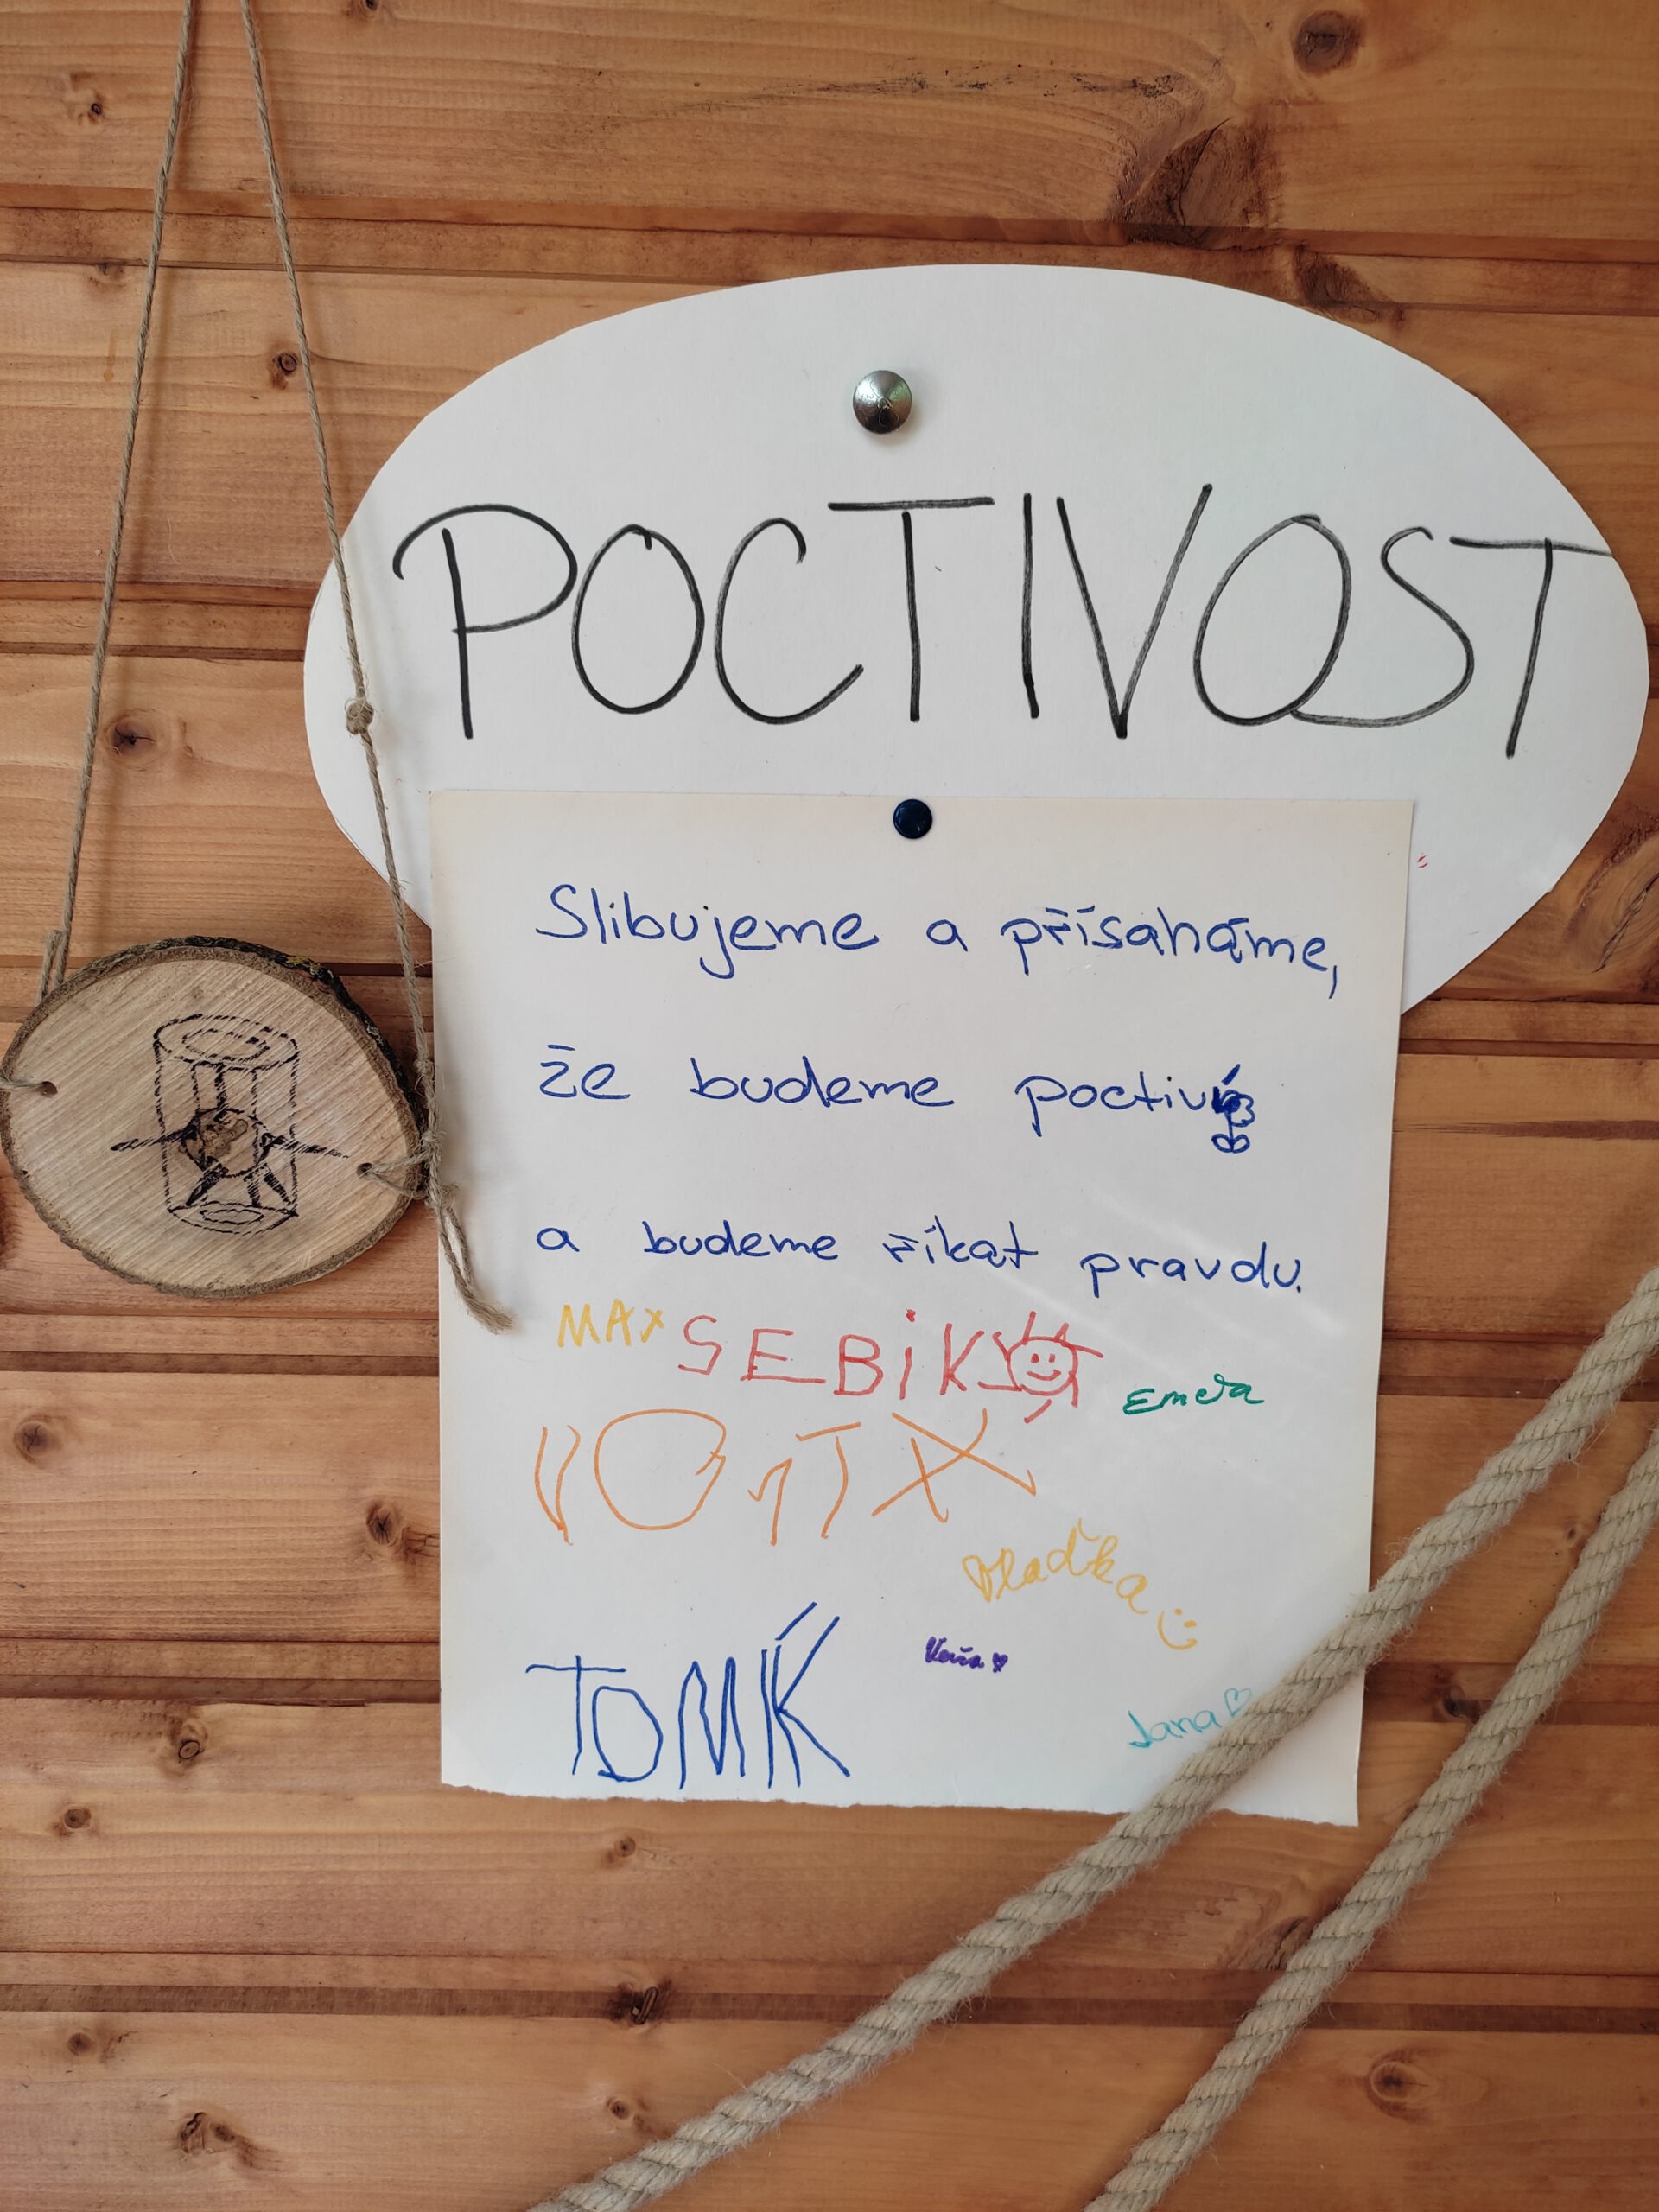 POCTIVOST
Slibujeme a přísaháme,
že budeme poctiví
a budeme říkat pravdu.
MAX SEBiK
Emča
VOJTA
Vlaďka :)
TOMÍK
Jana ♡